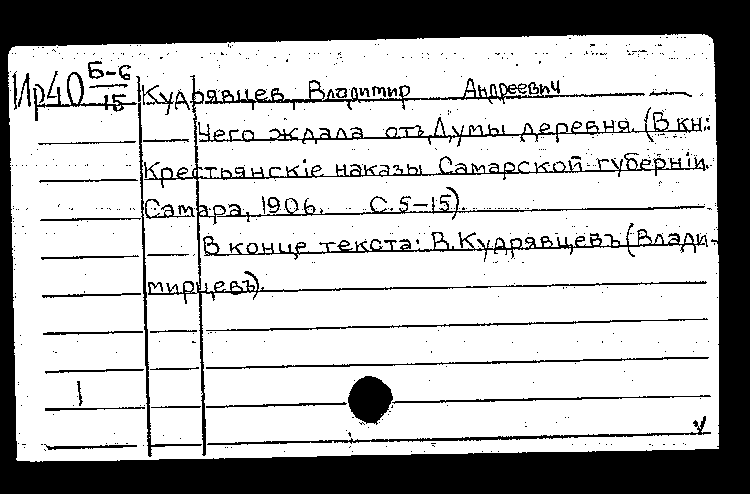 Ир40 Б-6/15
Кудрявцев, Владимир Андреевич
Чего ждала отъ Думы деревня. (В кн.:
Крестьянскіе наказы Самарской губерніи.
Самара, 1906. С. 5-15).
В конце текста: В. Кудрявцевъ (Влади-
мирцевъ).
1